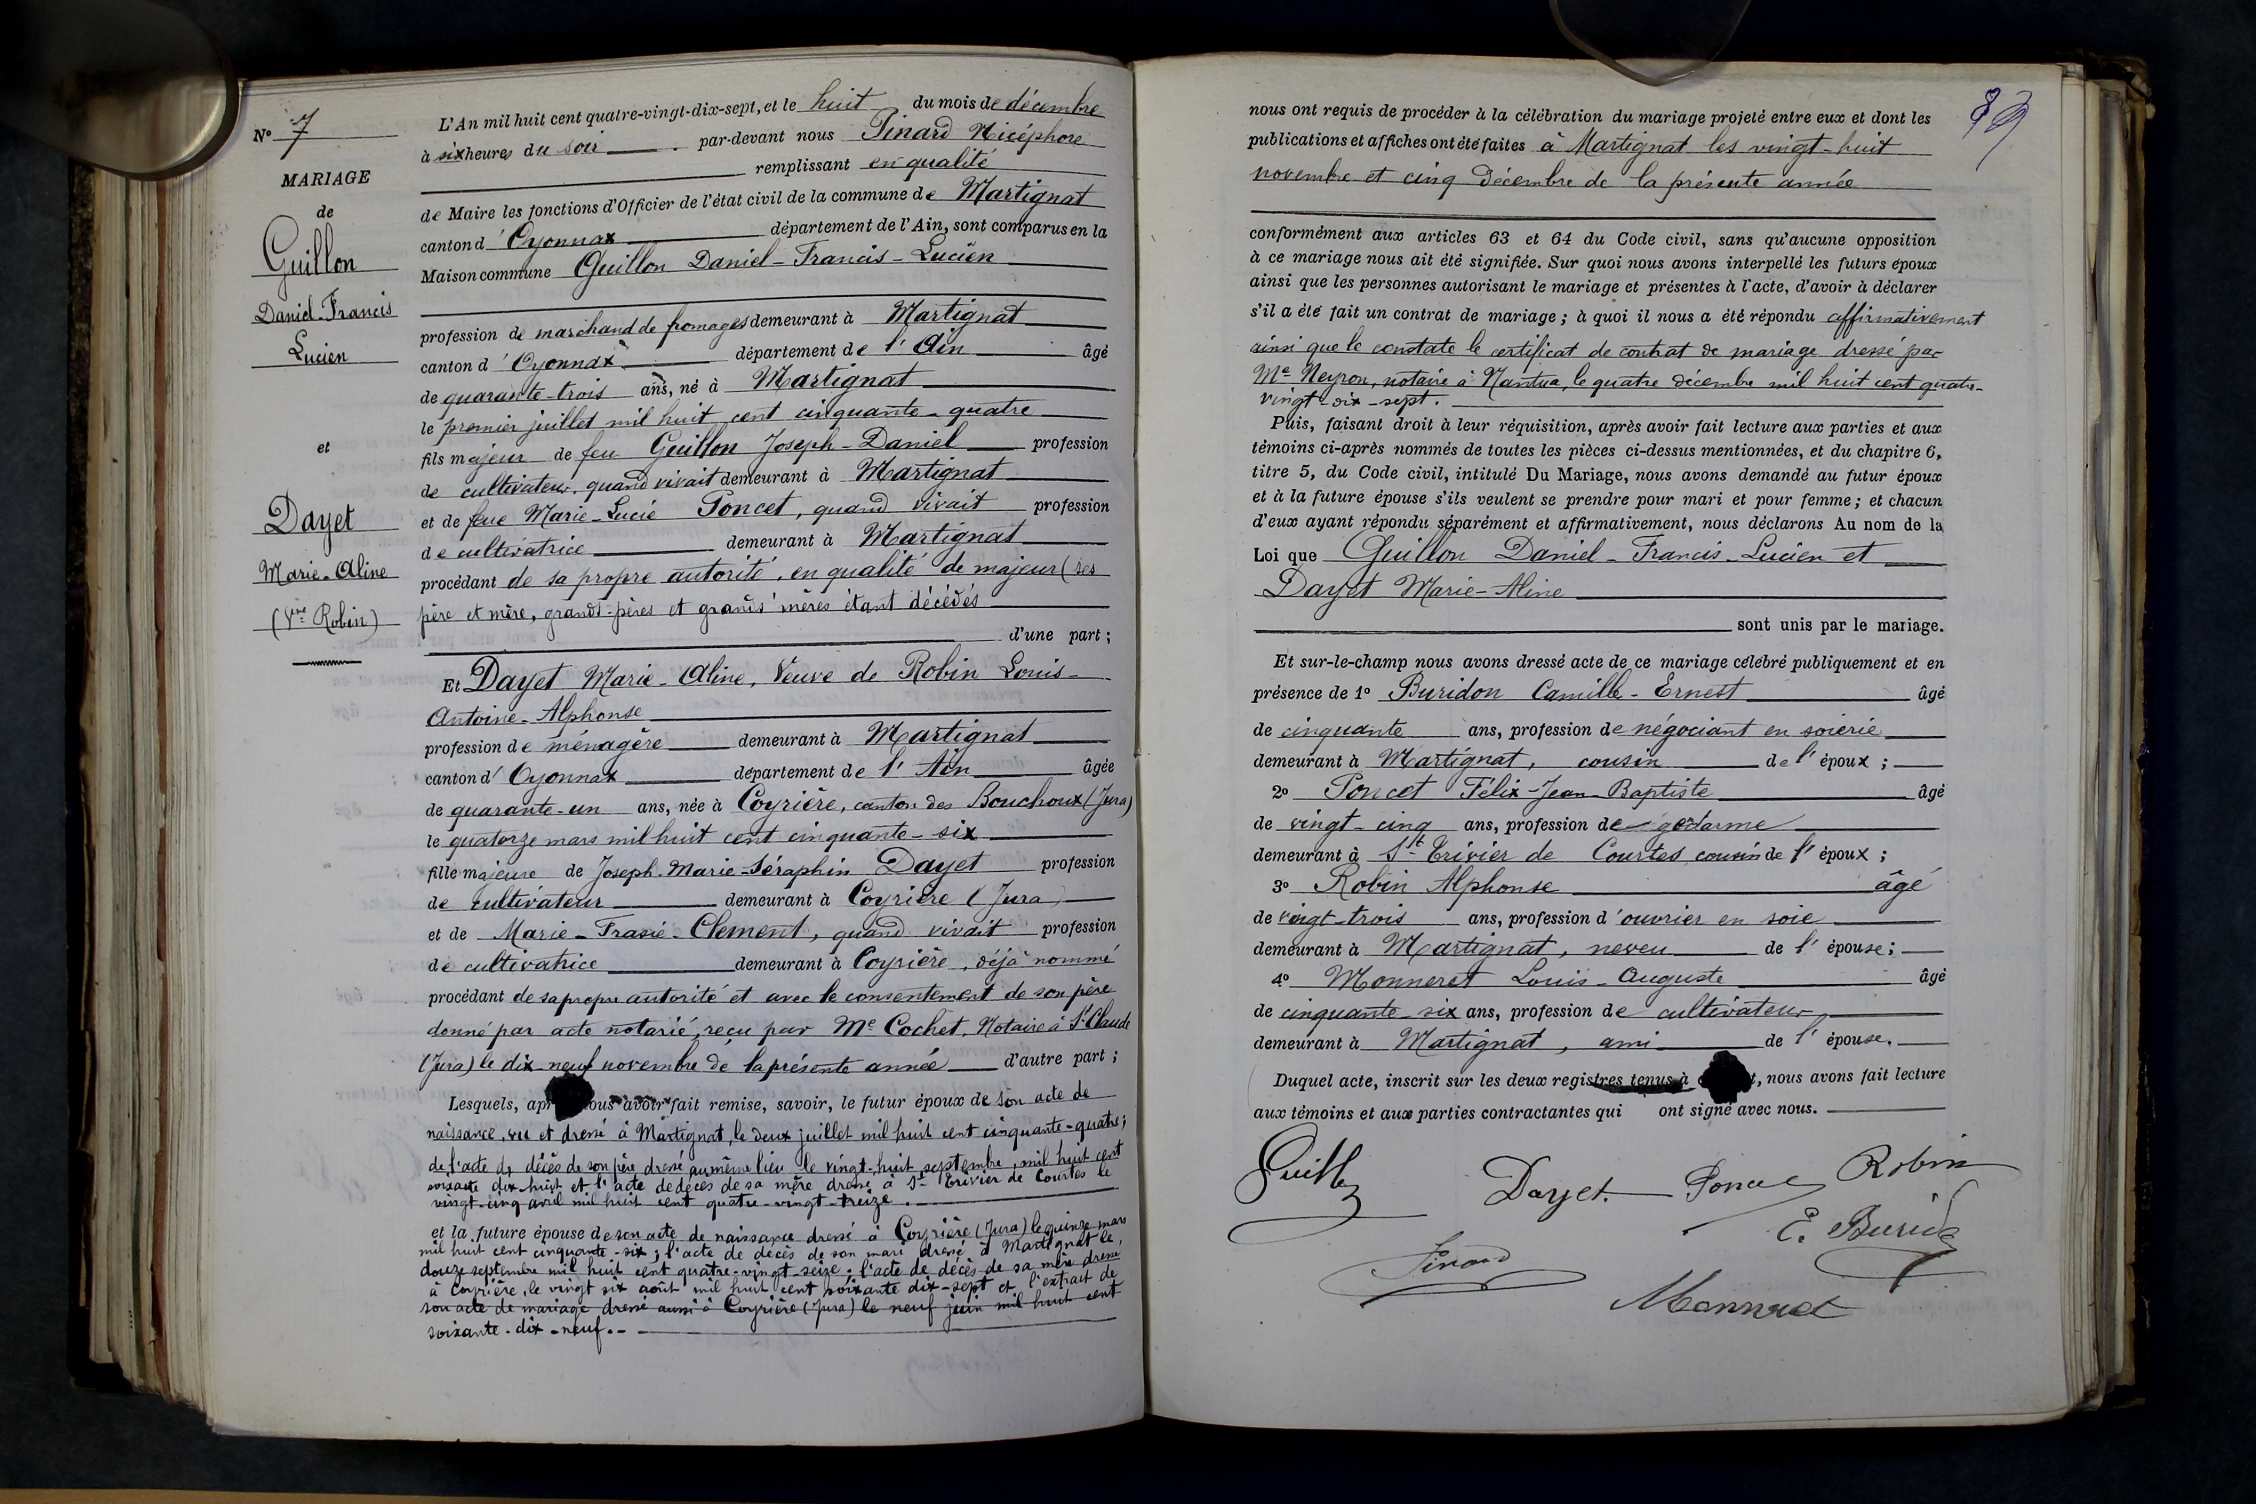 N° 7
MARIAGE
de
Guillon
Daniel-Francis
Lucien
et
Dayet
Marie-Aline
(Vve Robin)
L'An mil huit cent quatre-vingt-dix-sept, et le huit du mois de décembre
à six heures du soir par-devant nous Pinard Nicéphore
remplissant en qualité
de Maire les fonctions d'Officier de l'état civil de la commune de Martignat
canton d'Oyonnax département de l'Ain, sont comparus en la
Maison commune Guillon Daniel-Francis-Lucien
profession de marchand de fromages demeurant à Martignat
canton d'Oyonnax département de l'Ain âgé
de quarante-trois ans, né à Martignat
le premier juillet mil huit cent cinquante-quatre
fils majeur de feu Guillon Joseph-Daniel profession
de cultivateur, quand vivait demeurant à Martignat
et de feue Marie-Lucie Poncet, quand vivait profession
de cultivatrice demeurant à Martignat
procédant de sa propre autorité, en qualité de majeur (ses
père et mère, grands-pères et grands'mères étant décédés
d'une part ;
Et Dayet Marie-Aline, Veuve de Robin Louis-
Antoine-Alphonse
profession de ménagère demeurant à Martignat
canton d'Oyonnax département de l'Ain âgée
de quarante-un ans, née à Coyrière, canton des Bouchoux (Jura)
le quatorze mars mil huit cent cinquante-six
fille majeure de Joseph-Marie-Séraphin Dayet profession
de cultivateur demeurant à Coyrière (Jura)
et de Marie-Frasie-Clément, quand vivait profession
de cultivatrice demeurant à Coyrière, déjà nommé
procédant de sa propre autorité et avec le consentement de son père
donné par acte notarié, reçu par Me Cochet, Notaire à St Claude
(Jura) le dix-neuf novembre de la présente année d'autre part ;
Lesquels, apr nous avoir fait remise, savoir, le futur époux de son acte de
naissance, vu et dressé à Martignat, le deux juillet mil huit cent cinquante-quatre ;
de l'acte de décès de son père dressé au même lieu le vingt-huit septembre, mil huit cent
soixante dix-huit et l'acte de décès de sa mère dressé à St Trivier de Courtes le
vingt-cinq avril mil huit cent quatre-vingt-treize.
et la future épouse de son acte de naissance dressé à Coyrière (Jura) le quinze mars
mil huit cent cinquante-six ; l'acte de décès de son mari dressé à Martignat le
douze septembre mil huit cent quatre-vingt-seize ; l'acte de décès de sa mère dressé
à Coyrière, le vingt six août mil huit cent soixante dix-sept et l'extrait de
son acte de mariage dressé aussi à Coyrière (Jura) le neuf juin mil huit cent
soixante-dix-neuf.
nous ont requis de procéder à la célébration du mariage projeté entre eux et dont les
publications et affiches ont été faites à Martignat les vingt-huit
novembre et cinq décembre de la présente année
conformément aux articles 63 et 64 du Code civil, sans qu'aucune opposition
à ce mariage nous ait été signifiée. Sur quoi nous avons interpellé les futurs époux
ainsi que les personnes autorisant le mariage et présentes à l'acte, d'avoir à déclarer
s'il a été fait un contrat de mariage ; à quoi il nous a été répondu affirmativement
ainsi que le constate le certificat de contrat de mariage dressé par
Me Neyron, notaire à Nantua, le quatre décembre mil huit cent quatre-
vingt-dix-sept.
Puis, faisant droit à leur réquisition, après avoir fait lecture aux parties et aux
témoins ci-après nommés de toutes les pièces ci-dessus mentionnées, et du chapitre 6,
titre 5, du Code civil, intitulé Du Mariage, nous avons demandé au futur époux
et à la future épouse s'ils veulent se prendre pour mari et pour femme ; et chacun
d'eux ayant répondu séparément et affirmativement, nous déclarons Au nom de la
Loi que Guillon Daniel-Francis-Lucien et
Dayet Marie-Aline
sont unis par le mariage.
Et sur-le-champ nous avons dressé acte de ce mariage célébré publiquement et en
présence de 1° Buridon Camille-Ernest âgé
de cinquante ans, profession de négociant en soierie
demeurant à Martignat, cousin de l'époux ;
2° Poncet Félix-Jean-Baptiste âgé
de vingt-cinq ans, profession de gendarme
demeurant à St Trivier de Courtes cousin de l'époux ;
3° Robin Alphonse âgé
de vingt-trois ans, profession d'ouvrier en soie
demeurant à Martignat, neveu de l'épouse ;
4° Monneret Louis-Auguste âgé
de cinquante-six ans, profession de cultivateur
demeurant à Martignat, ami de l'épouse.
Duquel acte, inscrit sur les deux registres tenus à t, nous avons fait lecture
aux témoins et aux parties contractantes qui ont signé avec nous.
Dayet Poncet Robin
E. Burid
Pinard
Monneret